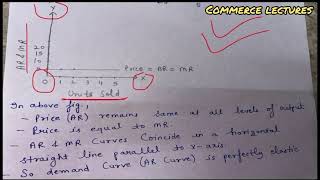 COMMERCE LECTURES
Y
AR & MR
20
15
10
5
Price = AR = MR
0 1 2 3 4 5 X
Units Sold
In above fig.,
- Price (AR) remains same at all levels of output
- Price is equal to MR.
- AR & MR Curves Coincide in a horizontal
straight line parallel to x-axis
- So demand Curve (AR Curve) is perfectly elastic